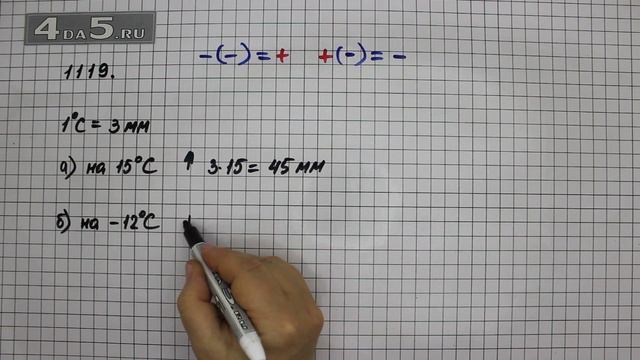 4ДА5.RU
-(-) = +   +(-) = -
1119.
1°C = 3 мм
а) на 15°C ↑ 3·15 = 45 мм
б) на -12°C